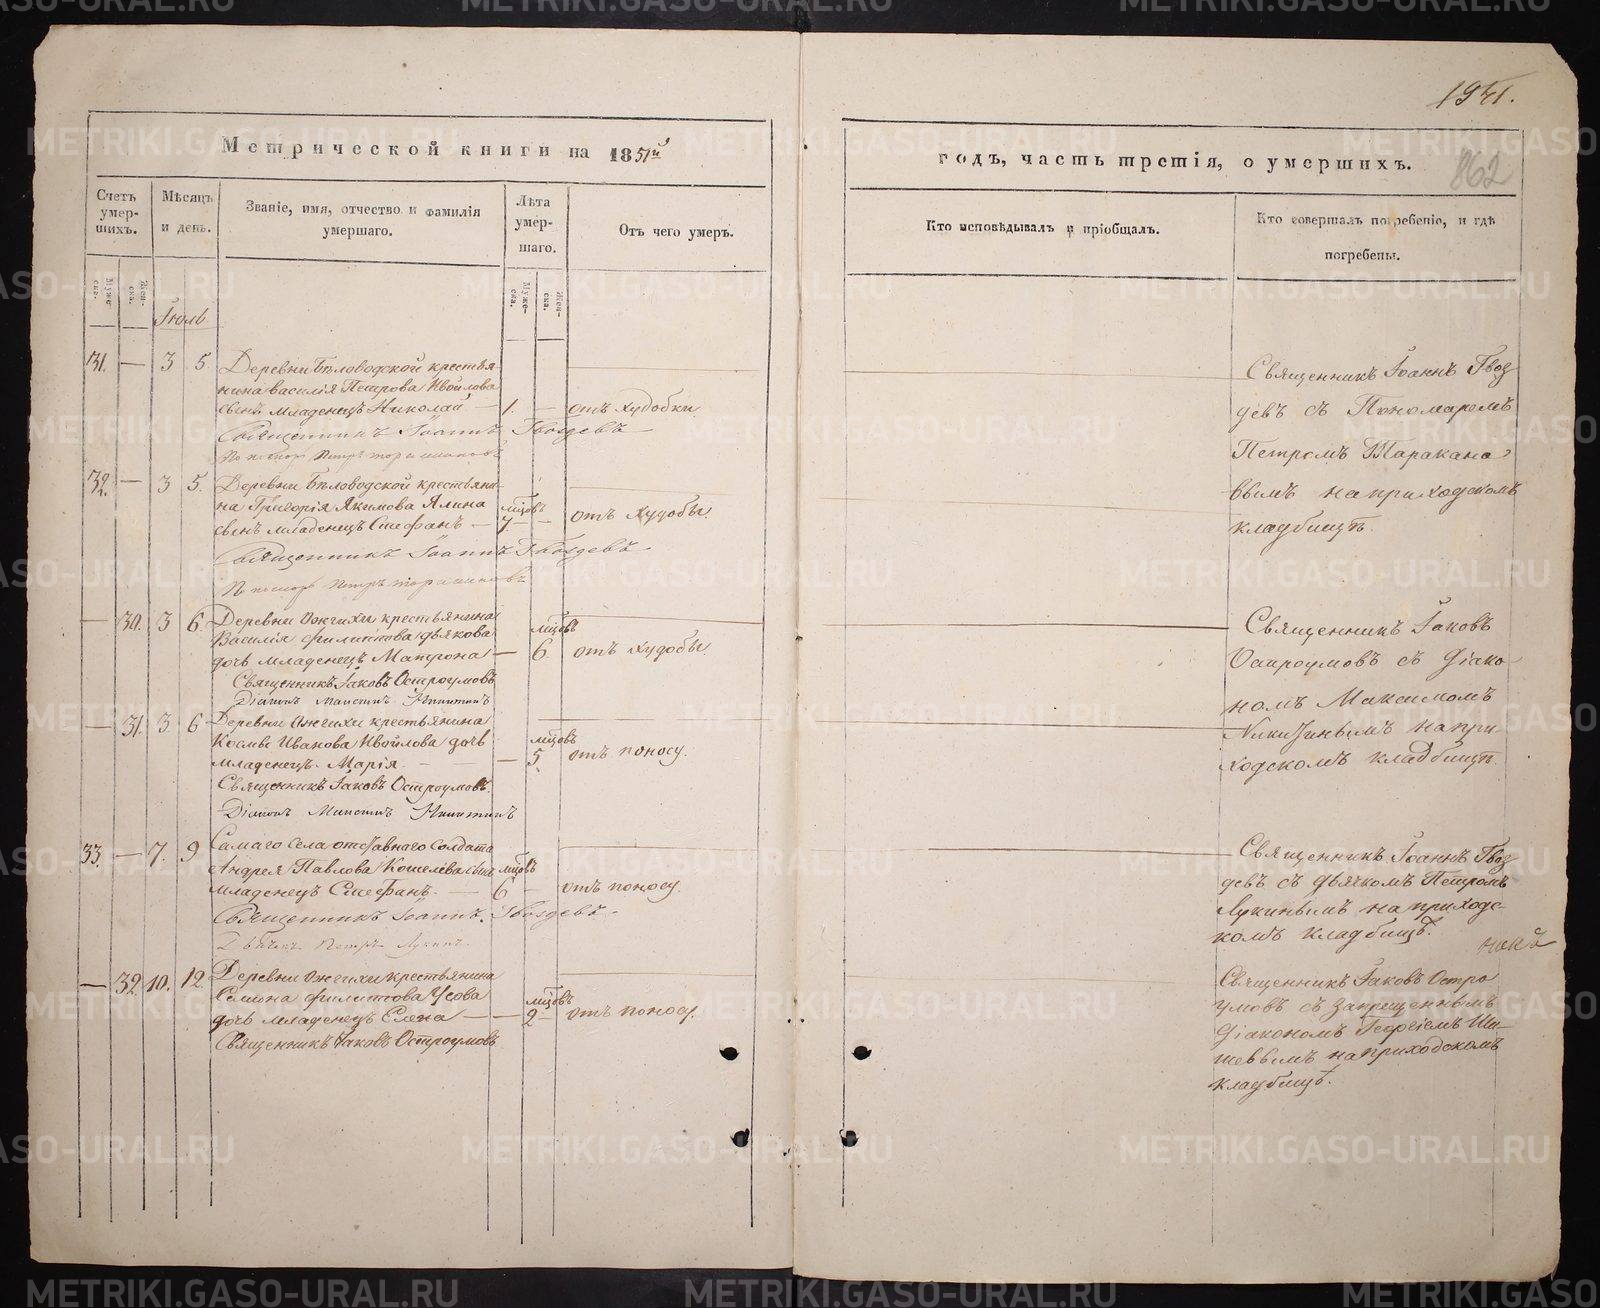 Метрической книги на 1851й
Счетъ умер-шихъ.
Мѣсяцъ и день.
Званіе, имя, отчество и фамилія умершаго.
Лѣта умер-шаго.
Отъ чего умеръ.
Муже-ска.
Жен-ска.
Муже-ска.
Жен-ска.
Іюль
31. — 3 5. Деревни Бѣловодской крестья
нина Василія Петрова Ивойлова
сынъ младенецъ Николай — 1. — отъ худобки
Священникъ Іоаннъ Гвоздевъ
32. — 3 5. Деревни Бѣловодской крестьяни
на Григорія Якимова Ялина мѣцовъ
сынъ младенецъ Стефанъ — 7 — отъ худобы.
Священникъ Іоаннъ Гвоздевъ
— 30. 3 6. Деревни Ожгихи крестьянина
Василія Филипова Дьякова мѣцовъ
дочь младенецъ Матрона — 6. отъ худобы.
Священникъ Іаковъ Остроумовъ
Діаконъ Максимъ Никитинъ
— 31. 3 6 Деревни Ожгихи крестьянина
Козмы Иванова Ивойлова дочь мѣцовъ
младенецъ Марія — 5. отъ поносу.
Священникъ Іаковъ Остроумовъ.
Діаконъ Максимъ Никитинъ
33. — 7. 9 Самаго села отставнаго солдата
Андрея Павлова Кошелева сынъ мѣцовъ
младенецъ Стефанъ. — 6 — отъ поносу.
Священникъ Іоаннъ Гвоздевъ
Дьячекъ Петръ Лукинъ
— 32. 10. 12. Деревни Ожгихи крестьянина
Семіона Филипова Усова мѣцовъ
дочь младенецъ Елена — 2 — отъ поносу.
Священникъ Іаковъ Остроумовъ
годъ, часть третія, о умершихъ.
862
Кто исповѣдывалъ и пріобщалъ.
Кто совершалъ погребеніе, и гдѣ погребены.
Священникъ Іоаннъ Гвоз
девъ съ Пономаремъ
Петромъ Таракано
вымъ на приходскомъ
кладбищѣ.
Священникъ Іаковъ
Остроумовъ съ Діако
номъ Максимомъ
Никитинымъ на при
ходскомъ кладбищѣ
Священникъ Іоаннъ Гвоз
девъ съ дьячкомъ Петромъ
Лукинымъ на приходс-
комъ кладбищѣ.
Священникъ Іаковъ Остро
умовъ съ запрещеннымъ
Діакономъ Георгіемъ Ши-
шевымъ на приходскомъ
кладбищѣ.
METRIKI.GASO-URAL.RU